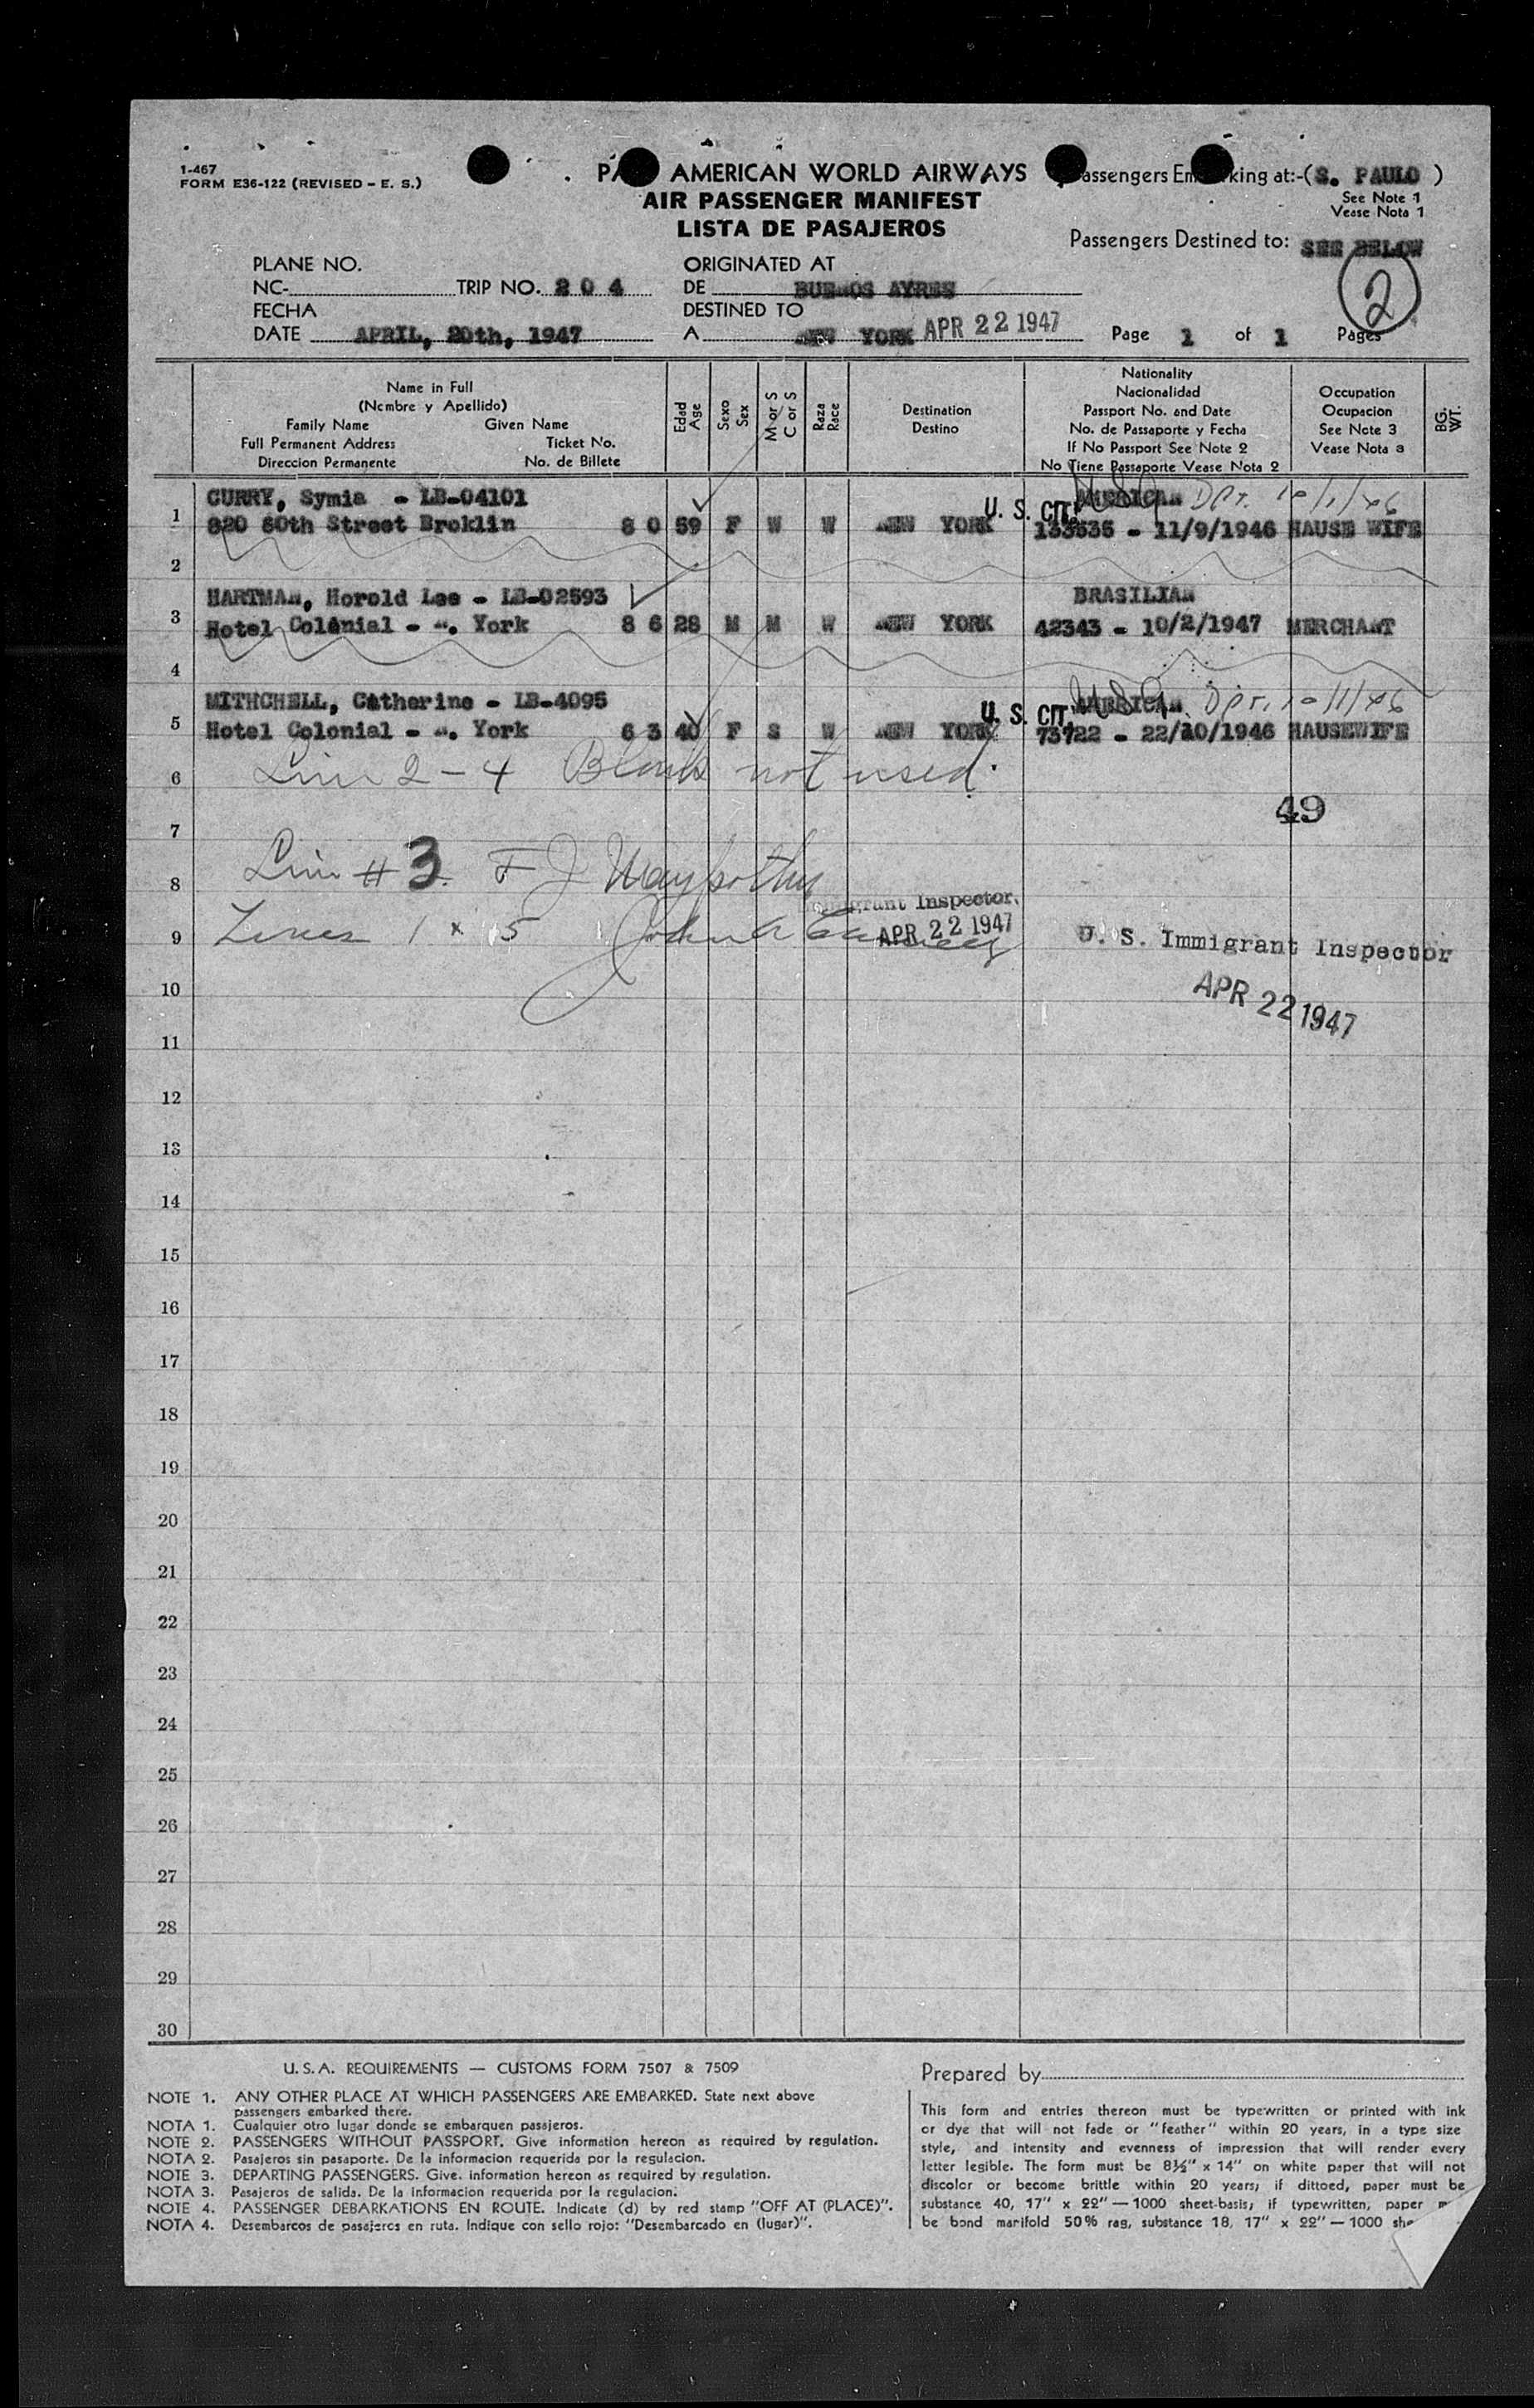 1-467
FORM E36-122 (REVISED - E. S.)
AMERICAN WORLD AIRWAYS
AIR PASSENGER MANIFEST
LISTA DE PASAJEROS
Passengers Embarking at:-(S. PAULO )
See Note 1
Vease Nota 1
Passengers Destined to: SEE BELOW
2
PLANE NO.
NC- TRIP NO. 2 0 4
FECHA
DATE APRIL, 20th, 1947
ORIGINATED AT
DE BUENOS AYRES
DESTINED TO
A NEW YORK APR 22 1947
Page 1 of 1 Pages
Name in Full
(Nombre y Apellido)
Family Name Given Name
Full Permanent Address Ticket No.
Direccion Permanente No. de Billete
Edad
Age
Sexo
Sex
M or S
C or S
Raza
Race
Destination
Destino
Nationality
Nacionalidad
Passport No. and Date
No. de Passaporte y Fecha
If No Passport See Note 2
No Tiene Passaporte Vease Nota 2
Occupation
Ocupacion
See Note 3
Vease Nota 3
BG.
WT.
CURRY, Symia - LB-04101 U. S. CIT. AMERICAN Dpt. 10/1/46
1 820 60th Street Broklin 8 0 59 F W W NEW YORK 133535 - 11/9/1946 HAUSE WIFE
2
HARTMAN, Horold Lee - LB-02593 BRASILIAN
3 Hotel Colonial - N. York 8 6 28 M M W NEW YORK 42343 - 10/2/1947 MERCHANT
4
MITHCHELL, Catherine - LB-4095 U. S. CIT. AMERICAN Dpt. 10/1/46
5 Hotel Colonial - N. York 6 3 40 F S W NEW YORK 73722 - 22/10/1946 HAUSEWIFE
6 Line 2 - 4 Blank not used.
49
7
8 Line # 3. F J
Immigrant Inspector.
9 Lines 1 x 5 John A APR 22 1947
U. S. Immigrant Inspector
APR 22 1947
10
11
12
13
14
15
16
17
18
19
20
21
22
23
24
25
26
27
28
29
30
U. S. A. REQUIREMENTS — CUSTOMS FORM 7507 & 7509
NOTE 1. ANY OTHER PLACE AT WHICH PASSENGERS ARE EMBARKED. State next above
passengers embarked there.
NOTA 1. Cualquier otro lugar donde se embarquen pasajeros.
NOTE 2. PASSENGERS WITHOUT PASSPORT. Give information hereon as required by regulation.
NOTA 2. Pasajeros sin pasaporte. De la informacion requerida por la regulacion.
NOTE 3. DEPARTING PASSENGERS. Give. information hereon as required by regulation.
NOTA 3. Pasajeros de salida. De la informacion requerida por la regulacion.
NOTE 4. PASSENGER DEBARKATIONS EN ROUTE. Indicate (d) by red stamp "OFF AT (PLACE)".
NOTA 4. Desembarcos de pasajeros en ruta. Indique con sello rojo: "Desembarcado en (lugar)".
Prepared by
This form and entries thereon must be typewritten or printed with ink
or dye that will not fade or "feather" within 20 years, in a type size
style, and intensity and evenness of impression that will render every
letter legible. The form must be 8½" x 14" on white paper that will not
discolor or become brittle within 20 years; if dittoed, paper must be
substance 40, 17" x 22" — 1000 sheet-basis; if typewritten, paper
be bond manifold 50% rag, substance 18, 17" x 22" — 1000